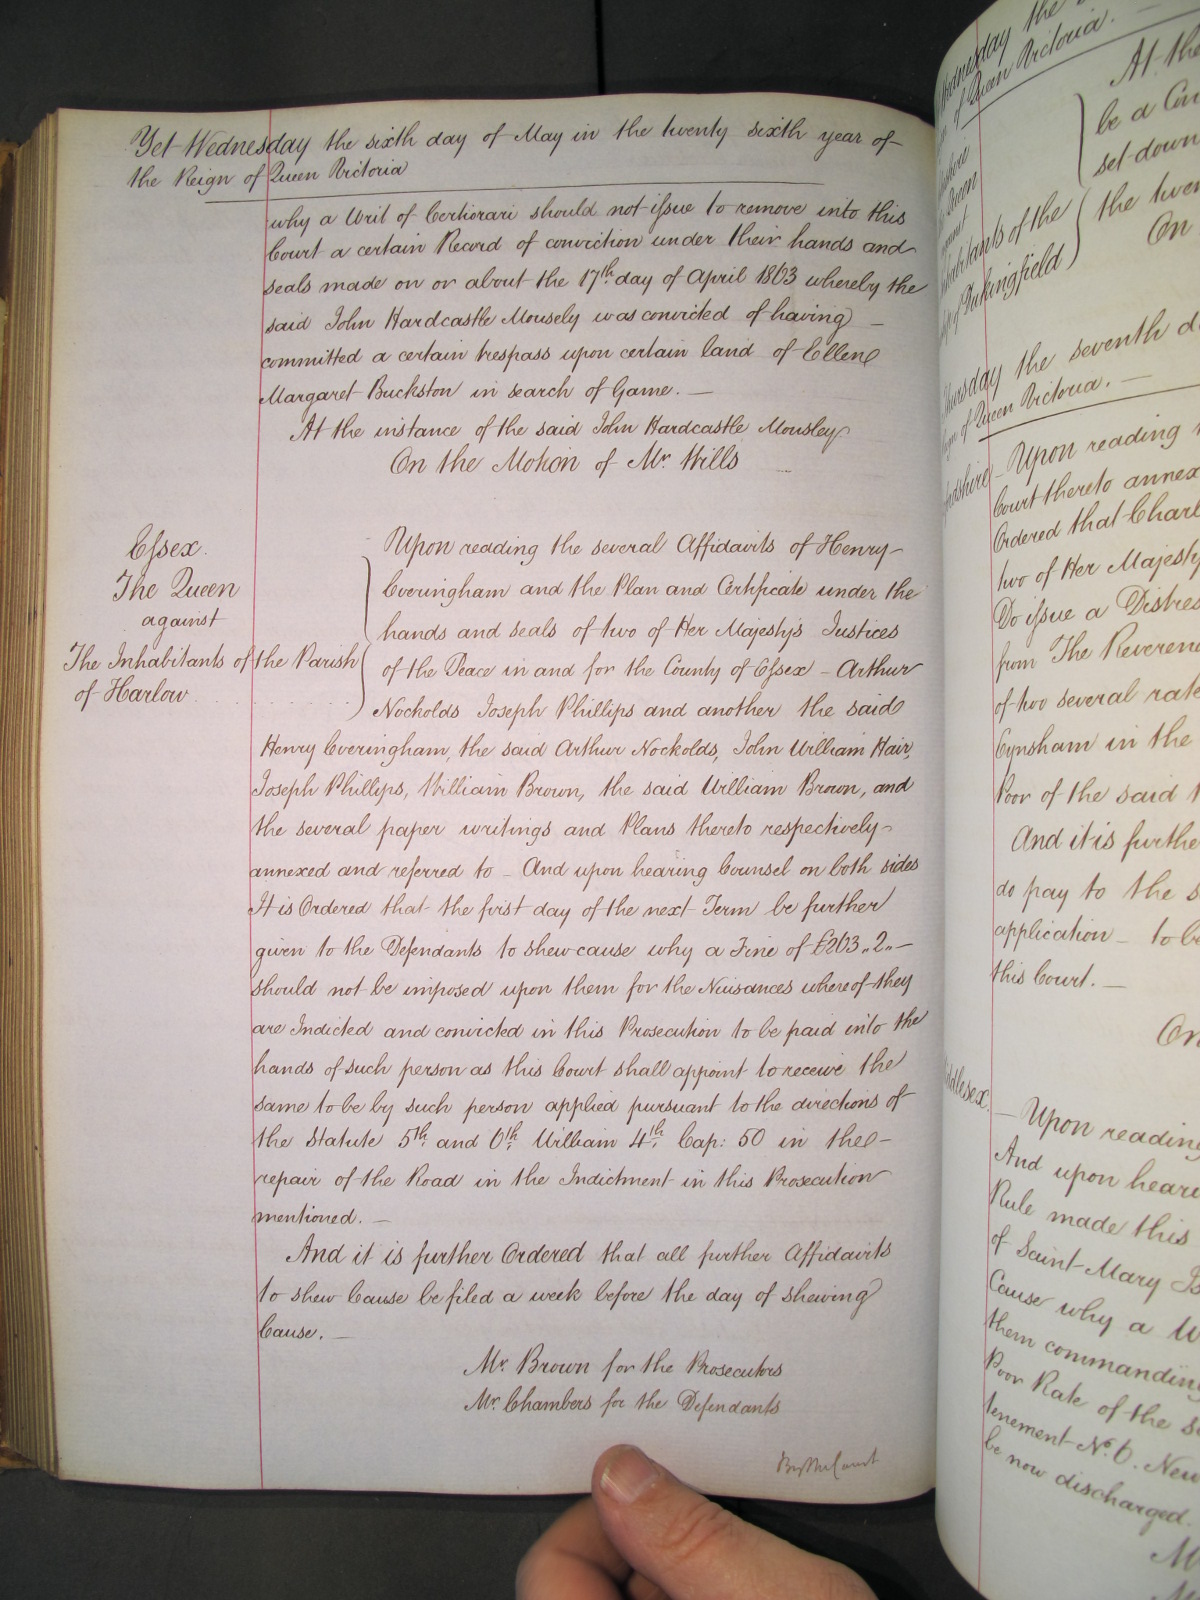 Yet Wednesday the sixth day of May in the twenty sixth year of
the Reign of Queen Victoria
why a Writ of Certiorari should not issue to remove into this
Court a certain Record of conviction under their hands and
seals made on or about the 17th day of April 1863 whereby the
said John Hardcastle Mousely was convicted of having
committed a certain trespass upon certain land of Ellen
Margaret Buckston in search of Game. —
At the instance of the said John Hardcastle Mousley
On the Motion of Mr. Wills
Essex.
The Queen
against
The Inhabitants of the Parish
of Harlow
Upon reading the several Affidavits of Henry
Everingham and the Plan and Certificate under the
hands and seals of two of Her Majesty's Justices
of the Peace in and for the County of Essex – Arthur
Nockolds Joseph Phillips and another the said
Henry Everingham, the said Arthur Nockolds, John William Hair,
Joseph Phillips, William Brown, the said William Brown, and
the several paper writings and Plans thereto respectively
annexed and referred to – And upon hearing Counsel on both sides
It is Ordered that the first day of the next Term be further
given to the Defendants to shew cause why a Fine of £263.,2.,–
should not be imposed upon them for the Nuisances whereof they
are Indicted and convicted in this Prosecution to be paid into the
hands of such person as this Court shall appoint to receive the
same to be by such person applied pursuant to the directions of
the Statute 5th and 6th William 4th Cap: 50 in the
repair of the Road in the Indictment in this Prosecution
mentioned. —
And it is further Ordered that all further Affidavits
to shew Cause be filed a week before the day of shewing
Cause. —
Mr. Brown for the Prosecutors
Mr. Chambers for the Defendants
By the Court
Wednesday the
of Queen Victoria. —
At the
be a Con
set down
Inhabitants of the
of Dukingfield
the twen
On
Thursday the seventh d
of Queen Victoria. —
Upon reading
Court thereto annex
Ordered that Charl
two of Her Majesty
Do issue a Distres
from The Reveren
of two several rate
Eynsham in the
Poor of the said
And it is furthe
do pay to the s
application – to be
this Court. —
On
Middlesex.
— Upon reading
And upon heari
Rule made this
of Saint Mary
Cause why a W
them commanding
Poor Rate of the s
tenement No. 6. New
be now discharged.